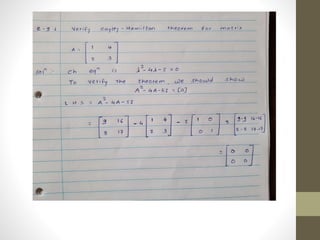 e.g.: Verify Cayley-Hamilton theorem for matrix
A = [ 1 4
2 3 ]
Solⁿ: Ch eqⁿ is λ² - 4λ - 5 = 0
To verify the theorem we should show
A² - 4A - 5I = [0]
L.H.S = A² - 4A - 5I
= [ 9 16
8 17 ] - 4 [ 1 4
2 3 ] - 5 [ 1 0
0 1 ] = [ 9-9 16-16
8-8 17-17 ]
= [ 0 0
0 0 ]